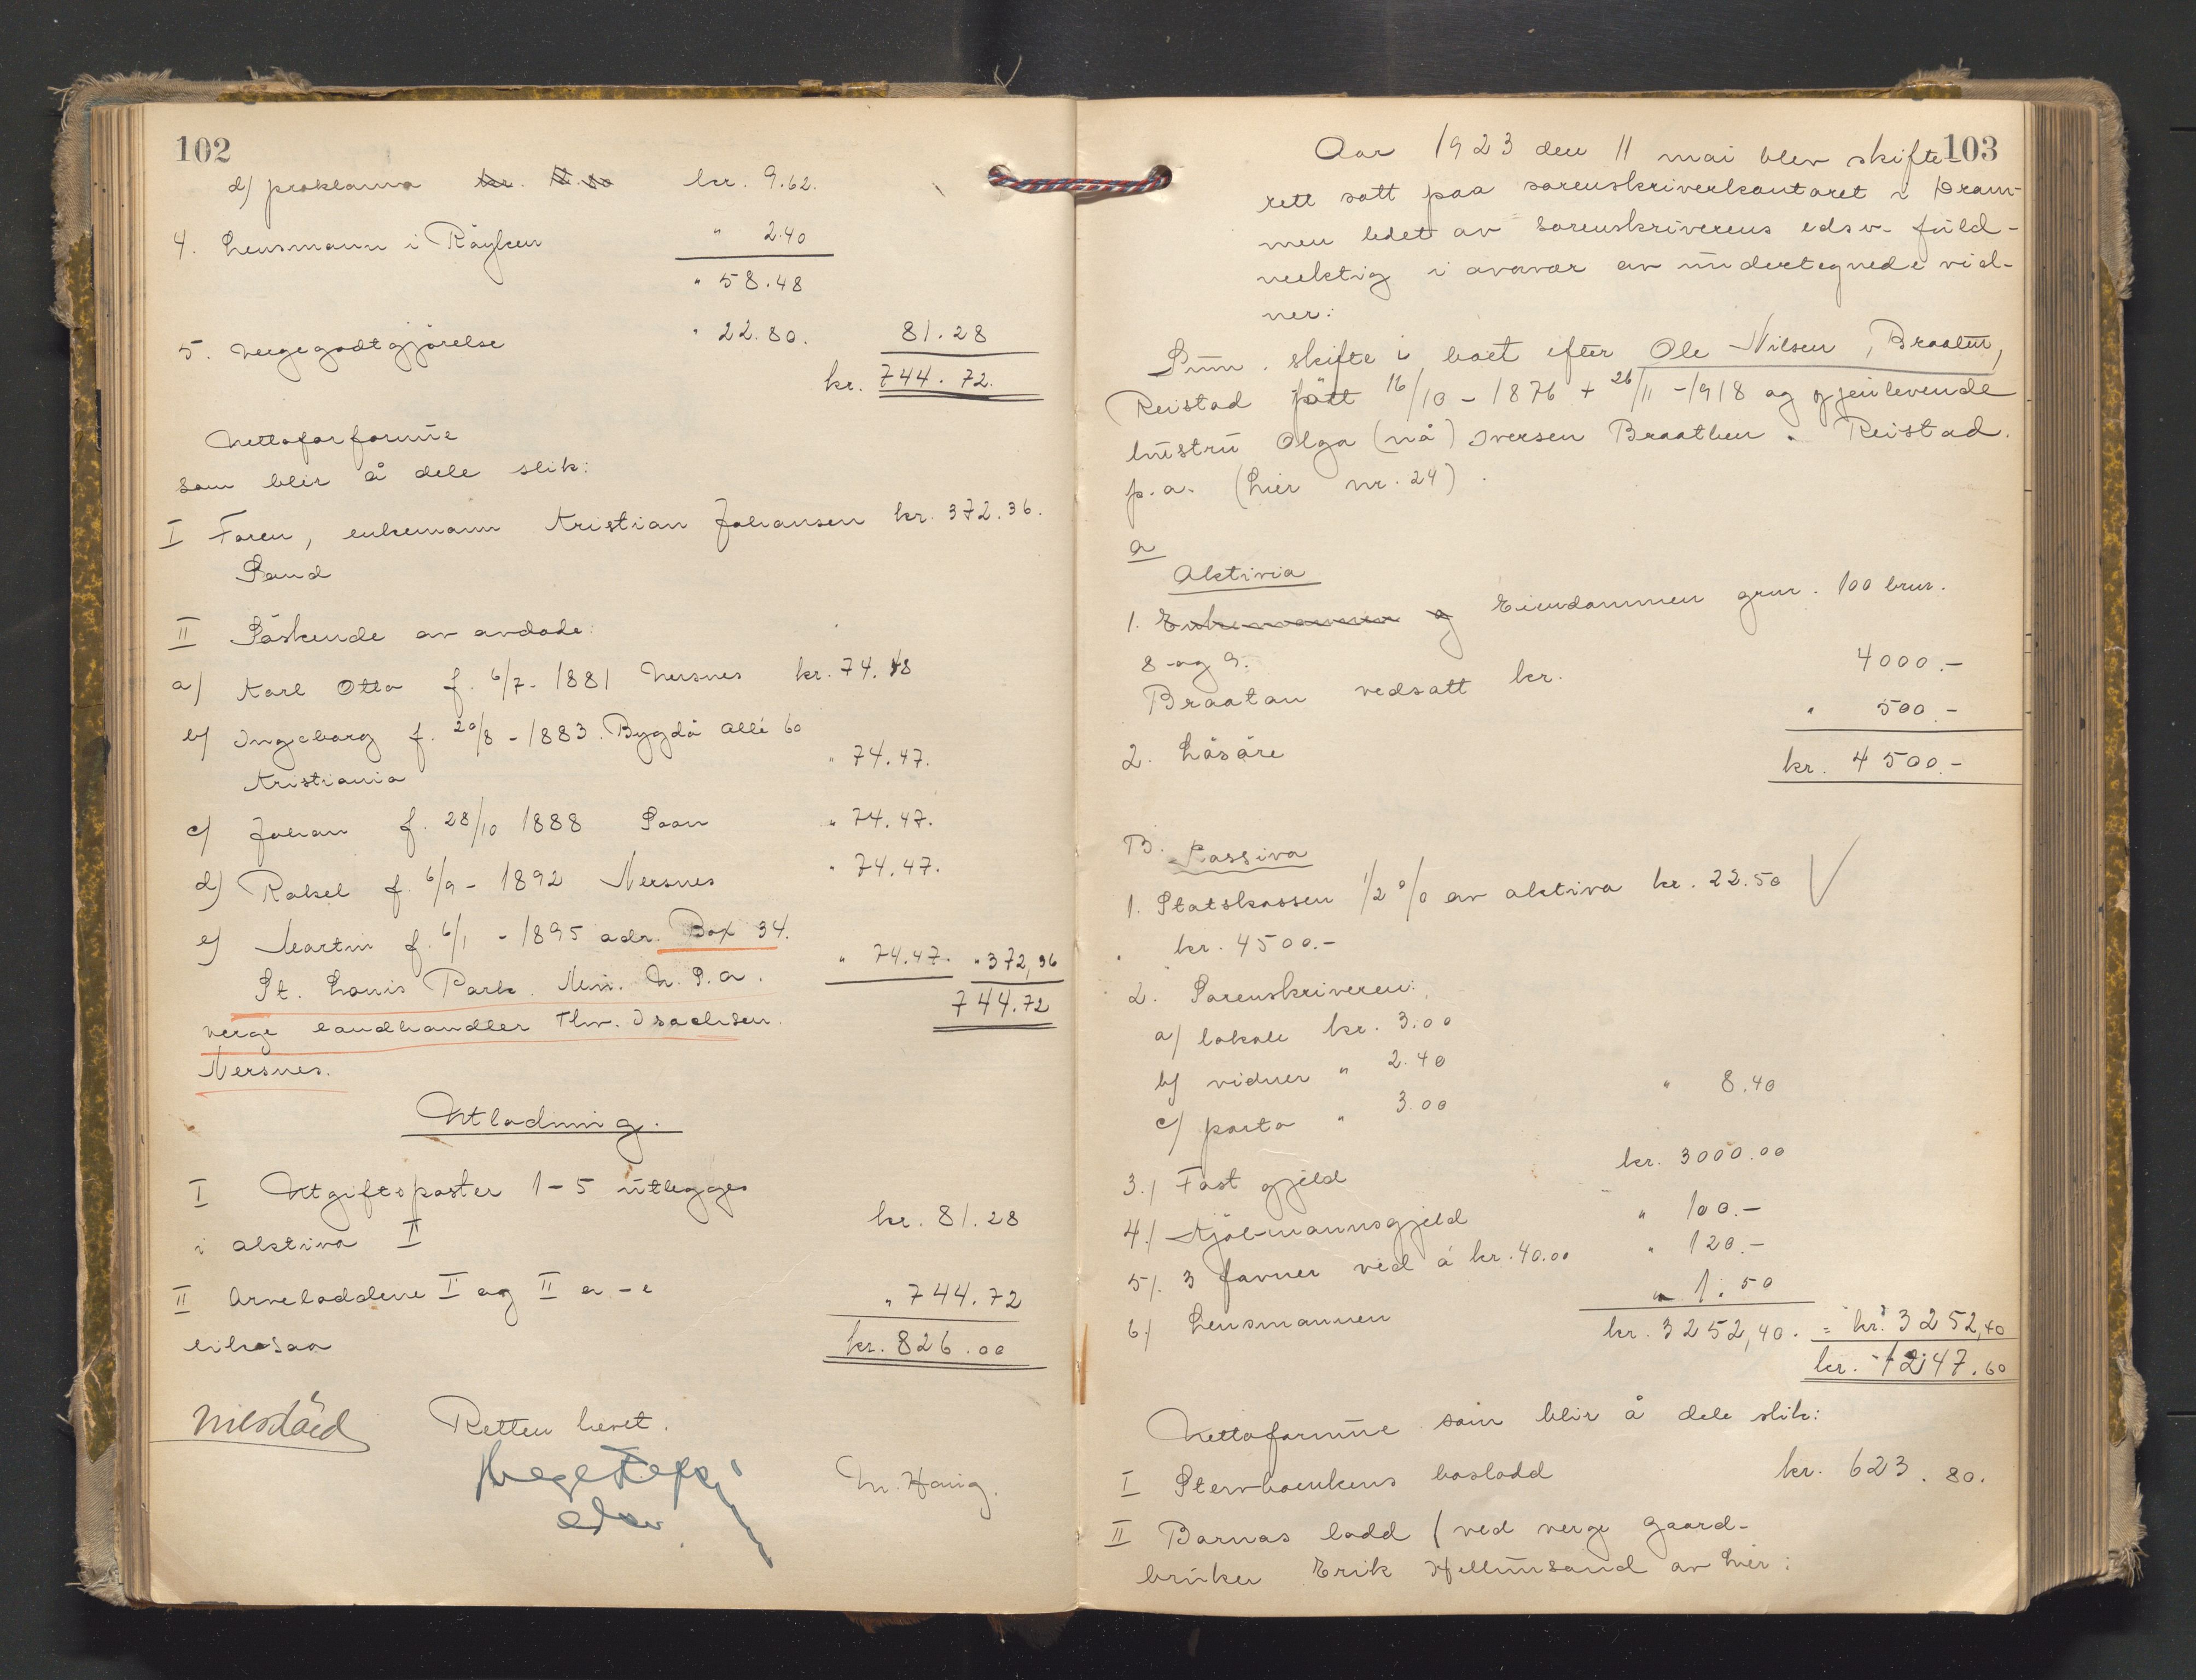 102
d) proklama kr. 9.62.
4. Lensmann i Röyken " 2.40
" 58.48
5. Vergegodtgjörelse " 22.80. 81.28
kr. 744.72.
Nettoforformue
som blir å dele slik:
I Faren, enkemann Kristian Johansen kr. 372.36.
Sand
II Söskende av avdöde:
a) Karl Otto f. 6/7-1881 Nersnes kr. 74.48
b) Ingeborg f. 20/8-1883. Bygdö allé 60
Kristiania " 74.47.
c) Johan f. 28/10 1888 Saan " 74.47.
d) Rakel f. 6/9-1892 Nersnes " 74.47.
e) Martin f. 6/1-1895 adr. Box 34.
St. Louis Park. Min. U.S.a. " 74.47. " 372,36
verge landhandler Thv. Isachsen. 744.72
Nersnes.
Utlodning.
I Utgiftsposter 1-5 utlegges
i aktiva I kr. 81.28
II Arveloddene I og II a-e
likesaa " 744.72
kr. 826.00
Retten hevet.
edsv.
M. Haug.
103
Aar 1923 den 11 mai blev skifte-
rett satt paa sorenskriverkontoret i Dram-
men ledet av sorenskriverens edsv. fuld-
mektig i overvær av undertegnede vid-
ner:
Sum. skifte i boet efter Ole Nilsen, Braaten,
Reistad födt 16/10-1876 + 26/11-1918 og gjenlevende
hustru Olga (nå) Iversen Braathen. Reistad.
p.a. (Lier nr. 24).
a
Aktivia
1. Enkemannen og Eiendommen gnr. 100 bnr.
8 og 9.
Braatan vedsatt kr. 4000.-
2. Lösöre " 500.-
kr. 4500.-
B. Passiva
1. Statskassen 1/2 % av aktiva kr. 22.50
kr. 4500.-
2. Sorenskriveren:
a) lokale kr. 3.00
b) vidner " 2.40
c) porto " 3.00 " 8.40
3.) Fast gjeld kr. 3000.00
4.) Kjöbmannsgjeld " 100.-
5). 3 favner ved á kr. 40.00 " 120.-
6.) Lensmannen " 1.50
kr. 3252,40. = kr. 3252,40
kr. 1247.60
Nettoformue som blir å dele slik:
I Stervboenkens boslodd kr. 623.80.
II Barnas lodd (ved verge gaard-
bruker Erik Hellumsand av Lier: